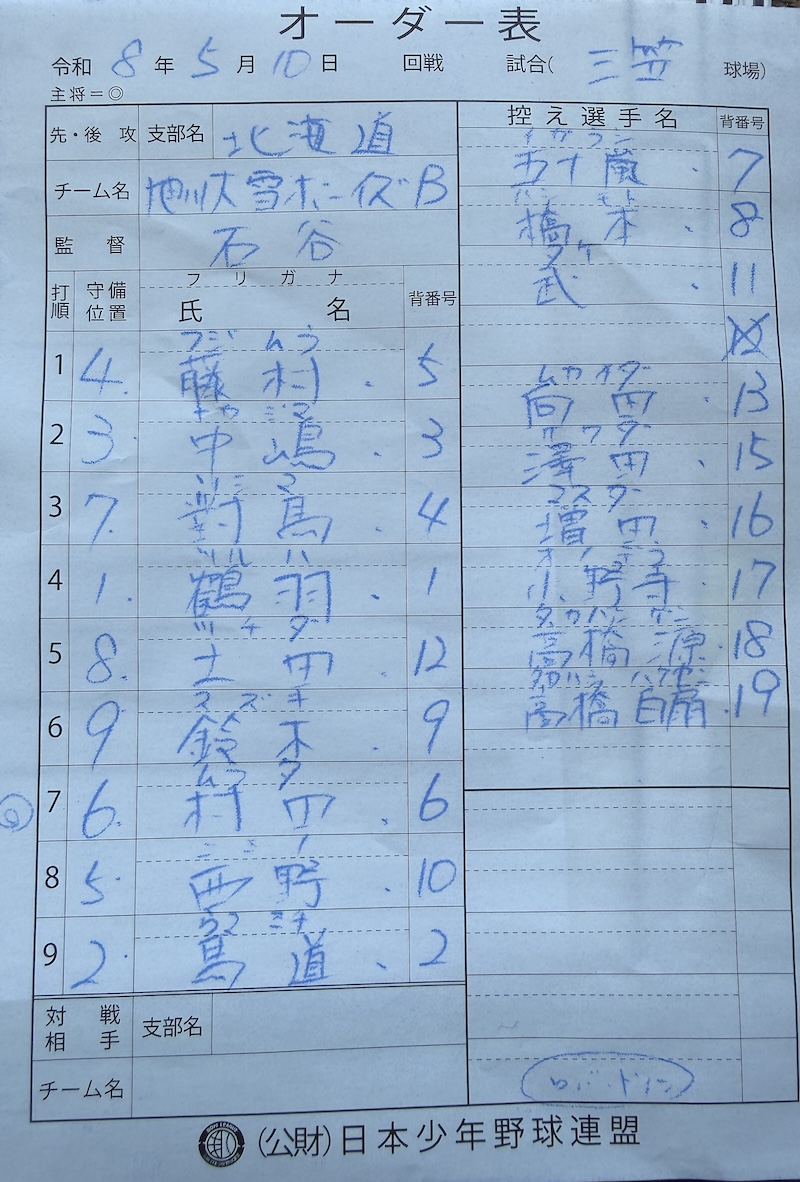 オーダー表
令和 8 年 5 月 10 日 回戦 試合( 三笠 球場)
主将＝◎
先・後 攻 支部名 北海道
チーム名 旭川大雪ボーイズB
監 督 石谷
打順 守備位置 フリガナ 氏 名 背番号
1 4. フジ ムラ 藤村 . 5
2 3. ナカ ジマ 中嶋 . 3
3 7. ツシ マ 對馬 . 4
4 1. ツル ハ 鶴羽 . 1
5 8. ツチ ダ 土田 . 12
6 9. スズ キ 鈴木 . 9
◎ 7 6. ムラ タ 村田 . 6
8 5. ニシ ノ 西野 . 10
9 2. ウマ ミチ 馬道 . 2
対 戦 相 手 支部名
チーム名
控え選手名 背番号
イガラシ 五十嵐 . 7
ハシ モト 橋本 . 8
タケ 武 . 11
12
ムカイダ 向田 . 13
サワダ 澤田 . 15
マスダ 増田 . 16
オノデラ 小野寺 . 17
タカハシ ゲン 高橋 源 . 18
タカハシ 高橋 . 19
(公財)日本少年野球連盟